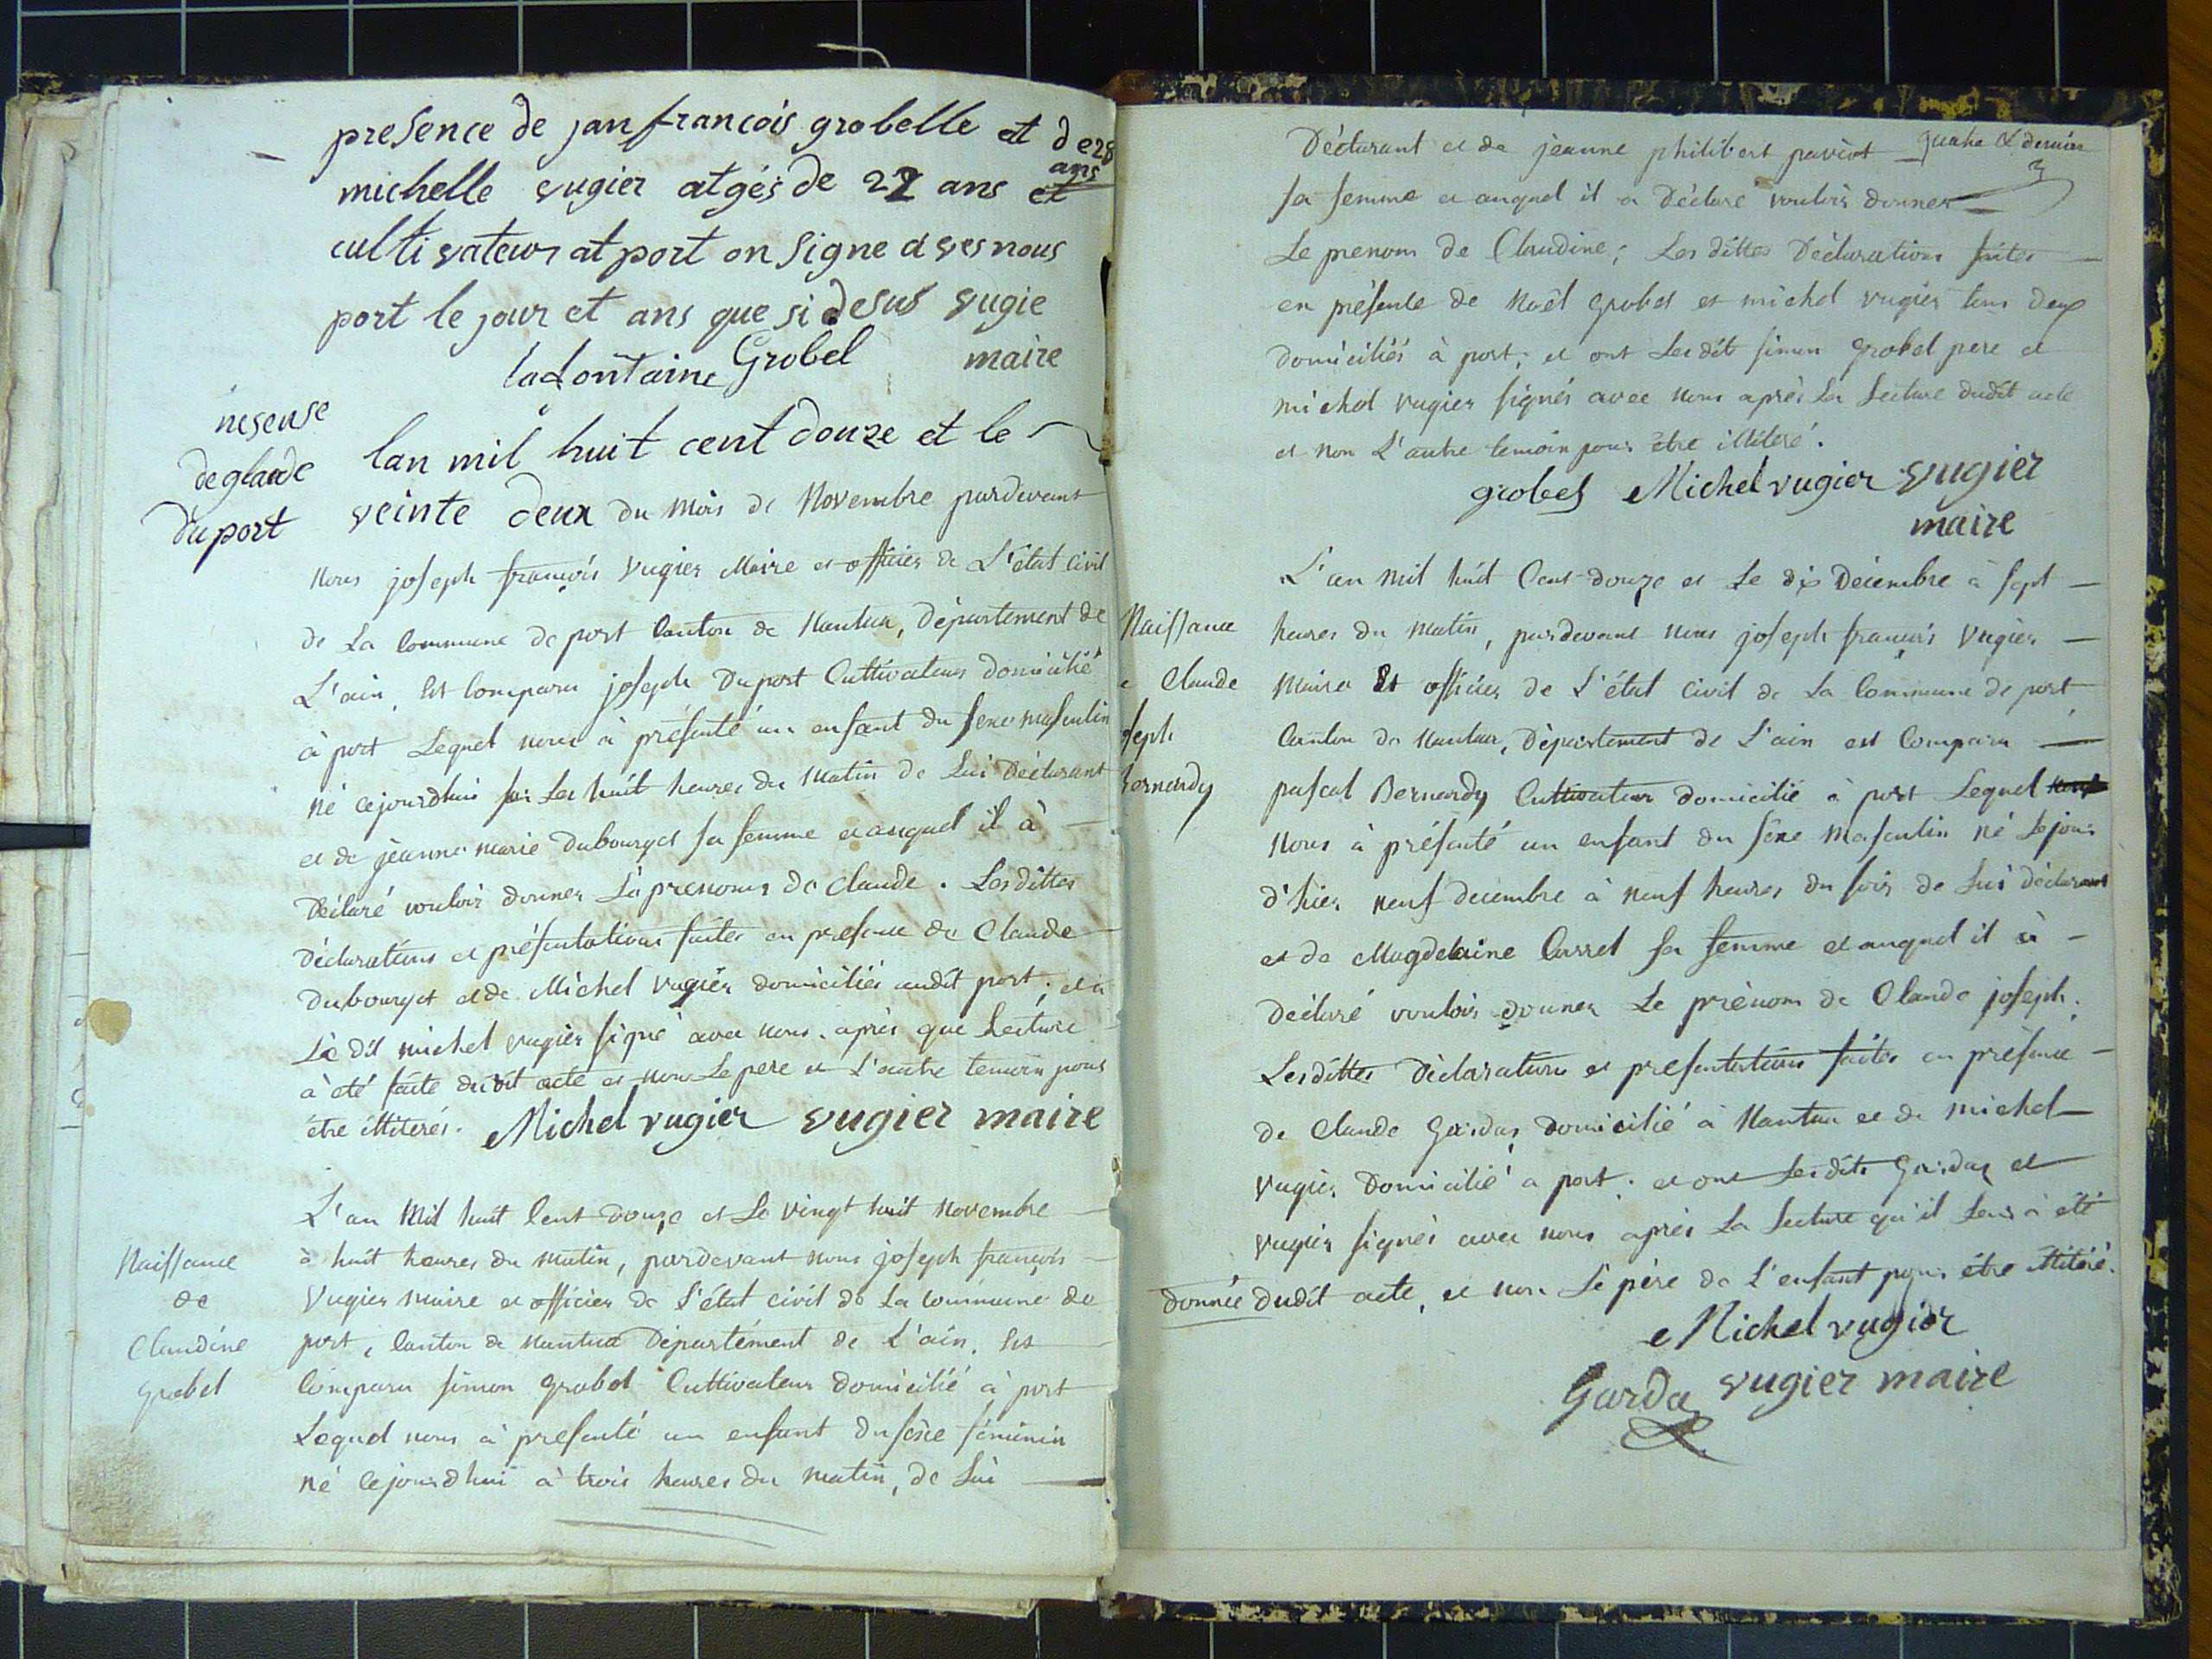 presence de jan francois grobelle et de 28 ans
michelle vugier atgés de 22 ans et
cultivateur at port on signe avesnous
port le jour et ans que si desus vugie
lafontaine Grobel maire
nesense
de glaude
Duport
lan mil huit cent douze et le
veinte deux du mois de Novembre pardevant
nous joseph françois Vugier Maire et officier de L'état Civil
de La Commune de port Canton de Nantua, Département de
L'ain, Est Comparu joseph Duport Cultivateur domicilié
à port Lequel nous à présenté un enfant du sexe masculin
né cejourdhui sur Les huit heures du Matin de Lui Déclarant
et de jeanne marie Dubourget sa femme et auquel il à
Déclaré vouloir donner Le prenoms de Claude. Les dittes
Déclarations et présentations faites en presence de Claude
Dubourget et de Michel Vugier domiciliés audit port, et à
Le dit michel vugier signé avec nous. après que Lecture
à été faite dudit acte et non Le pere et L'autre temoin pour
être illiterés. Michel vugier vugier maire
Naissance
de
Claudine
Grobel
L'an Mil huit Cent douze et Le vingt huit Novembre
à huit heures du matin, pardevant nous joseph françois
Vugier maire et officier de L'état civil de La commune de
port, Canton de nantua Département de L'ain, Est
Comparu simon Grobel Cultivateur domicilié à port
Lequel nous à presenté un enfant du sexe féminin
né cejourdhui à trois heures du matin, de Lui
quatre & dernier
Déclarant et de jeanne philibert
sa femme et auquel il a Déclaré vouloir donner
Le prenom de Claudine; Les dittes Déclarations faites
en présente de Noël Grobel et michel vugier tous deux
domiciliés à port; et ont Les dit simon Grobel pere et
michel vugier signés avec nous après La Lecture dudit acte
et non L'autre temoin pour être illiteré.
grobel Michel vugier vugier
maire
Naissance
e Claude
oseph
Bernardy
L'an Mil huit Cent douze et Le dix Décembre à sept
heures du Matin, pardevant nous joseph françois Vugier
Maire Et officier de L'état Civil de La Commune de port
Canton de Nantua, Département de L'ain est Comparu
pascal Bernardy Cultivateur domicilié à port Lequel
Nous à présenté un enfant du sexe Masculin né Le jour
d'hier neuf decembre à neuf heures du soir de Lui déclarant
et de Magdelaine Carrel sa femme et auquel il à
Déclaré vouloir donner Le prénom de Claude joseph.
Les dittes Déclaration et presentations faites en présence
de Claude Gardaz domicilié à Nantua et de michel
Vugier Domicilié a port; et ont Les dits Gardaz et
vugier signés avec nous après La Lecture qu'il Leur à été
donnée dudit acte, et non Le père de L'enfant pour être illiteré.
Michel vugier
Gardaz vugier maire